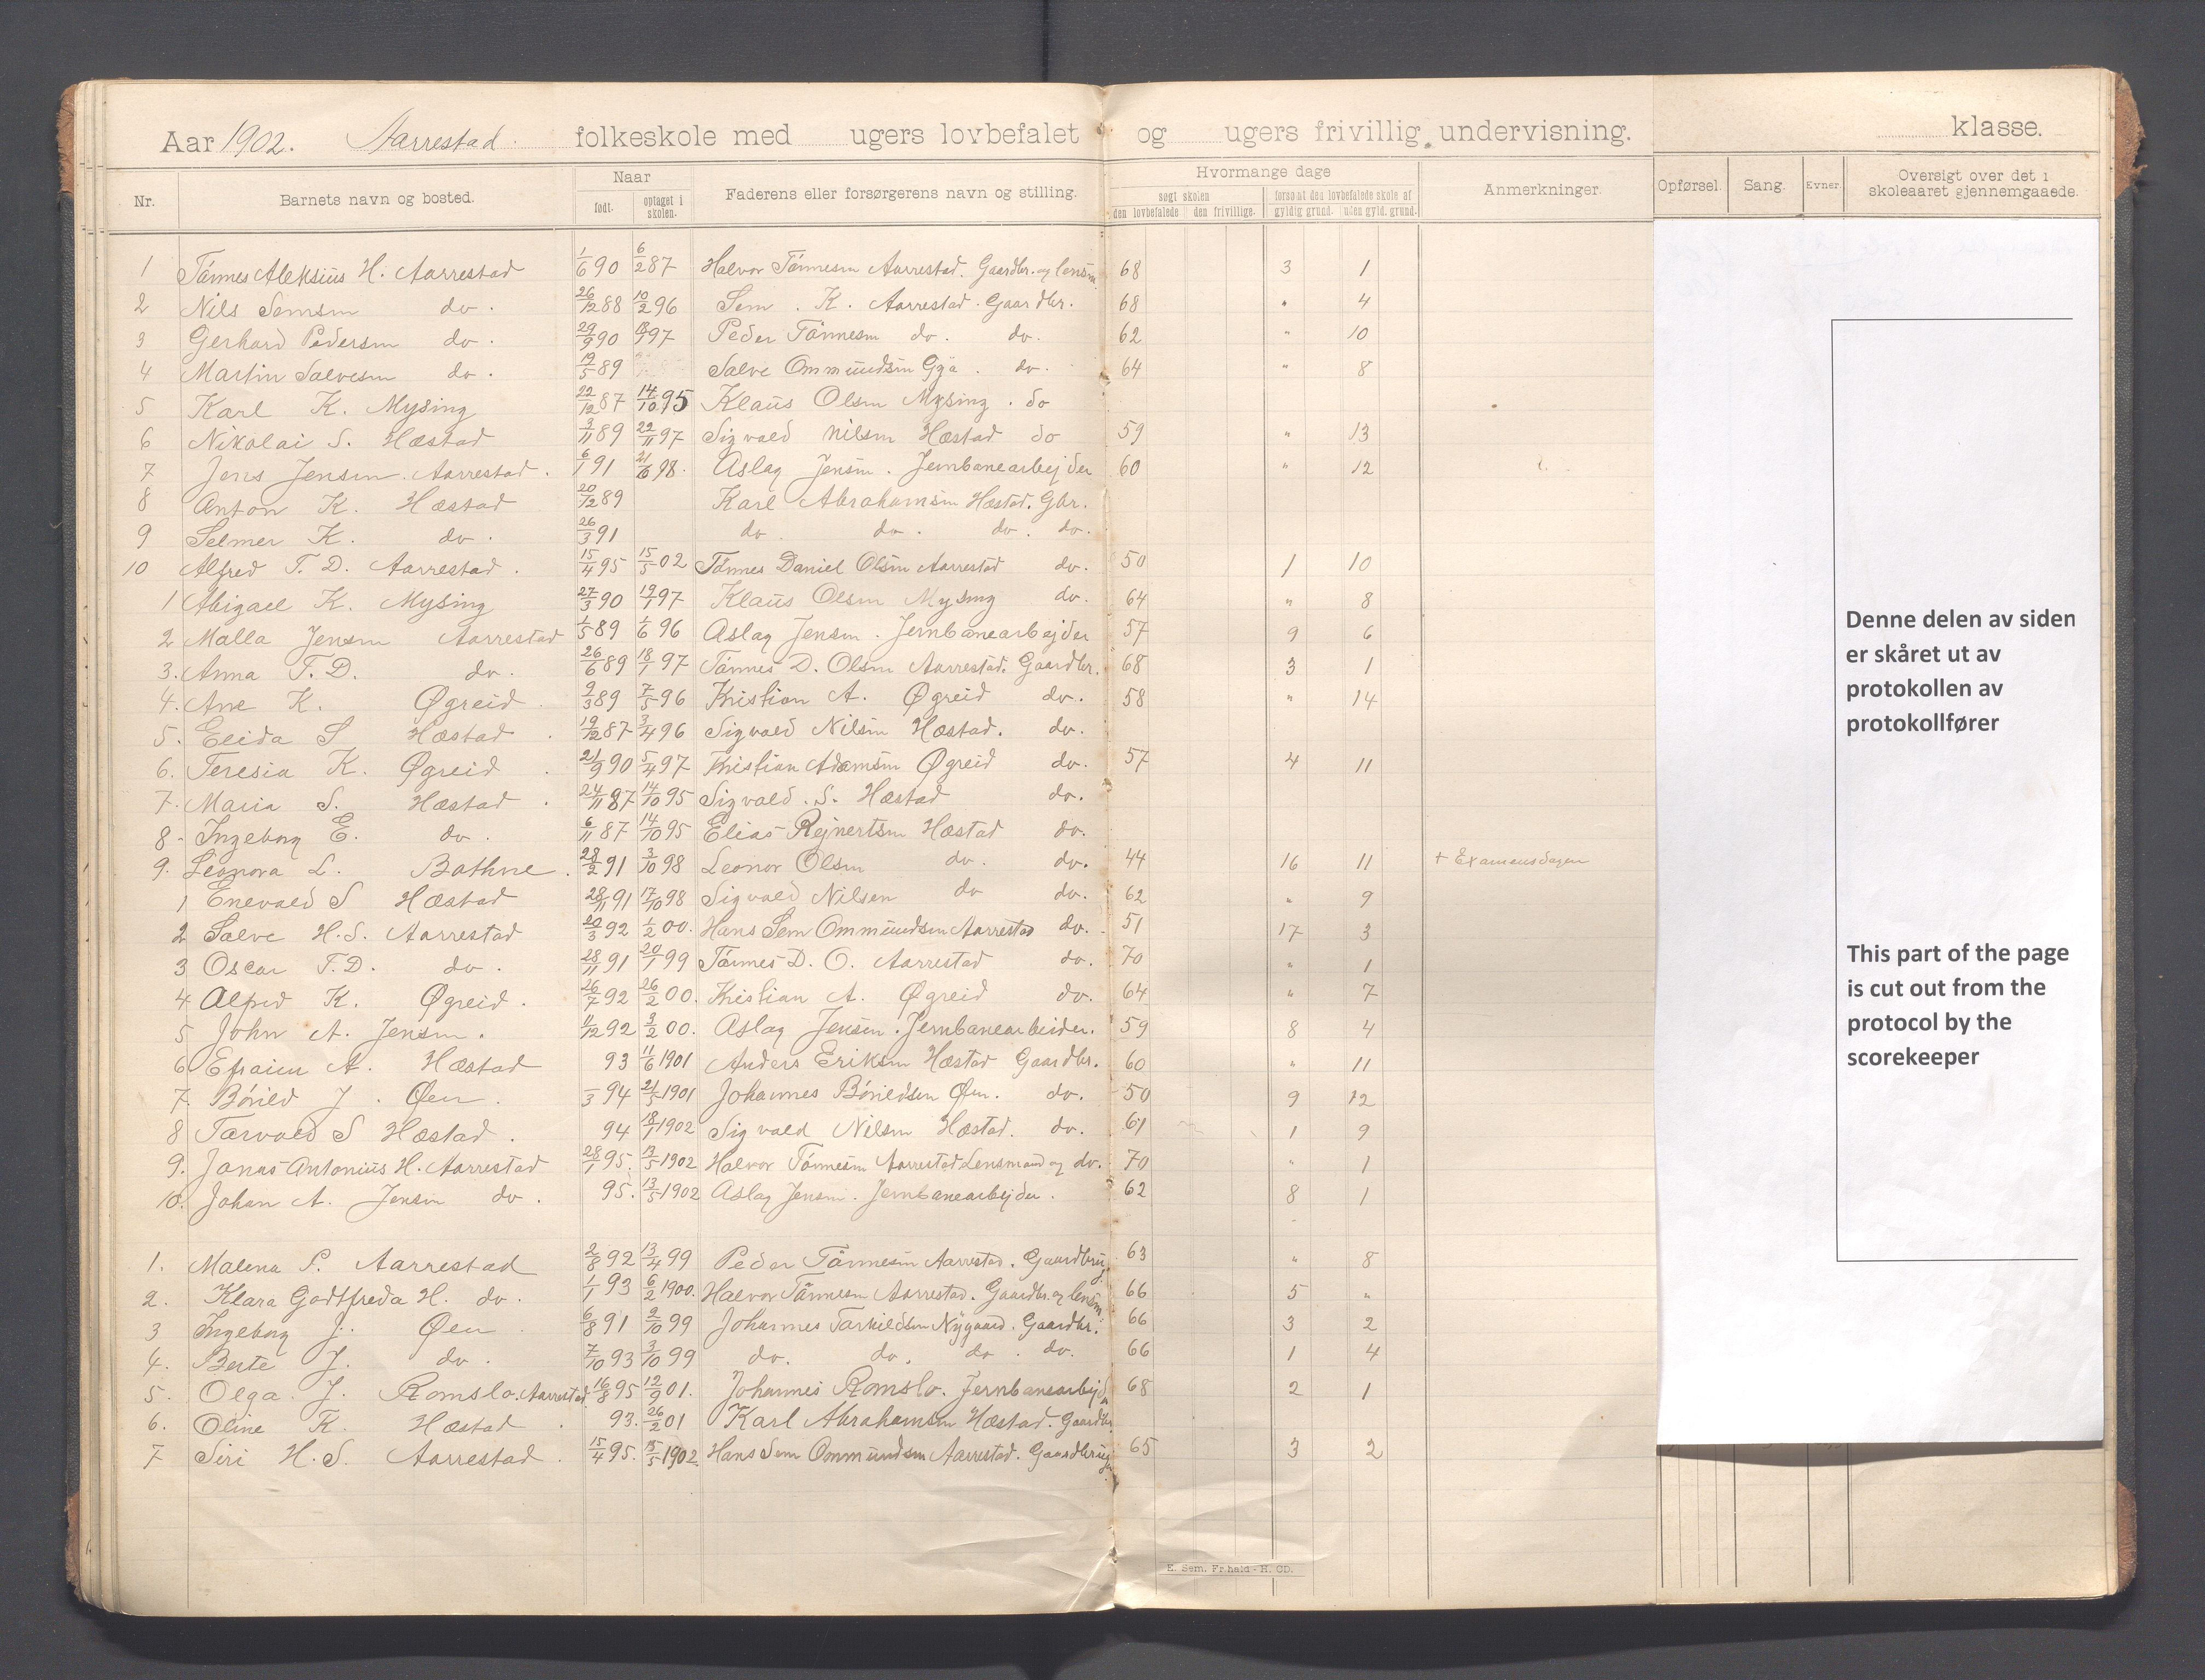 Aar 1902. Aarrestad folkeskole med ugers lovbefalet og ugers frivillig undervisning. klasse.
Nr. Barnets navn og bosted. Naar født. optaget i skolen. Faderens eller forsørgerens navn og stilling. Hvormange dage søgt skolen den lovbefalede den frivillige. forsømt den lovbefalede skole af gyldig grund. uden gyld. grund. Anmerkninger. Opførsel. Sang. Evner. Oversigt over det i skoleaaret gjennemgaaede.
1 Tönnes Aleksius H. Aarrestad 1/6 90 6/2 87 Halvor Tönnesen Aarrestad. Gaardbr. og lensm. 68 3 1
2 Nils Semsen do. 26/12 88 10/2 96 Sem. K. Aarrestad. Gaardbr. 68 " 4
3 Gerhard Pedersen do. 29/9 90 97 Peder Tönnesen do. do. 62 " 10
4 Martin Salvesen do. 19/5 89 Salve Ommundsen do. 64 " 8
5 Karl K. Mysing 22/12 87 14/10 95 Klaus Olsen Mysing. do
6 Nikolai S. Hæstad 3/11 89 22/11 97 Sigvald Nilsen Hæstad do 59 " 13
7 Jens Jensen. Aarrestad. 6/1 91 21/6 98. Aslag Jensen. Jernbanearbejder 60 " 12
8 Anton K. Hæstad 20/12 89 Karl Abrahamsen Hæstad. Gbr.
9 Selmer K. do. 26/3 91 do. do. do. do.
10 Alfred T. D. Aarrestad. 15/4 95 15/5 02 Tönnes Daniel Olsen Aarrestad do. 50 1 10
1 Abigael K. Mysing 27/3 90 19/1 97 Klaus Olsen Mysing do. 64 " 8
2 Malla Jensen Aarrestad 1/5 89 1/6 96 Aslag Jensen. Jernbanearbejder 57 9 6
3. Anna T. D. do. 26/6 89 18/1 97 Tönnes D. Olsen Aarrestad. Gaardbr. 68 3 1
4. Ane K. Øgreid. 9/3 89 7/5 96 Kristian A. Øgreid do. 58 " 14
5. Elida S Hæstad. 19/12 87 3/4 96 Sigvald Nilsen Hæstad. do.
6. Teresia K. Øgreid. 21/9 90 5/4 97 Kristian Adamsen Øgreid do. 57 4 11
7. Maria S. Hæstad. 24/11 87 14/10 95 Sigvald. S. Hæstad do.
8. Ingeborg E. do. 6/11 87 14/10 95 Elias Rejnertsen Hæstad do.
9. Leonora L. Bathne. 28/2 91 3/10 98 Leonor Olsen do. do. 44 16 11 + Examensdagen
1 Enevald S Hæstad 28/11 91 17/10 98 Sigvald Nilsen do do. 62 " 9
2 Salve H.S. Aarrestad 20/3 92 1/2 00. Hans Sem Ommundsen Aarrestad do. 51 17 3
3 Oscar T.D. do. 28/11 91 20/1 99 Tönnes D. O. Aarrestad do. 70 " 1
4 Alfred K. Øgreid. 26/7 92 26/2 00. Kristian A. Øgreid do. 64 " 7
5 John A. Jensen. 11/12 92 9/2 00. Aslag Jensen. Jernbanearbeider. 59 8 4
6 Efraim A. Hæstad 93 11/6 1901 Anders Eriksen Hæstad Gaardbr. 60 " 11
7. Bórild J. Øen. 3 94 21/5 1901 Johannes Bórildsen Øen. do. 50 9 12
8 Tarvald S Hæstad. 94 18/1 1902 Sigvald Nilsen Hæstad. do. 61 1 9
9. Jonas Antonius H. Aarrestad 28/1 95. 13/5 1902 Halvor Tönnesen Aarrestad Lensmand og do. 70 " 1
10. Johan A. Jensen do. 95. 13/5 1902 Aslag Jensen. Jernbanearbejder. 62 8 1
1. Malena P. Aarrestad 2/8 92 13/4 99 Peder Tönnesen Aarrestad. Gaardbrug. 63 " 8
2. Klara Godtfreda H. do. 1/1 93 6/2 1900. Halvor Tönnesen Aarrestad. Gaardbr. og lensm. 66 5 "
3 Ingeborg J. Øen. 6/8 91 2/10 99 Johannes Tarkildsen Nygaard. Gaardbr. 66 3 2
4. Berte J. do. 7/10 93 3/10 99 do. do. do. do. 66 1 4
5. Olga J. Romslo. Aarrestad 16/8 95 12/9 01. Johannes Romslo. Jernbanearbejder 68 2 1
6. Oline K. Hæstad. 93. 26/2 01 Karl Abrahamsen Hæstad. Gaardbr.
7 Siri H.S. Aarrestad. 15/4 95. 13/5 1902. Hans Sem Ommundsen Aarrestad. Gaardbruger. 65 3 2
E. Sem. Fr.hald - H. CD.
Denne delen av siden
er skåret ut av
protokollen av
protokollfører
This part of the page
is cut out from the
protocol by the
scorekeeper